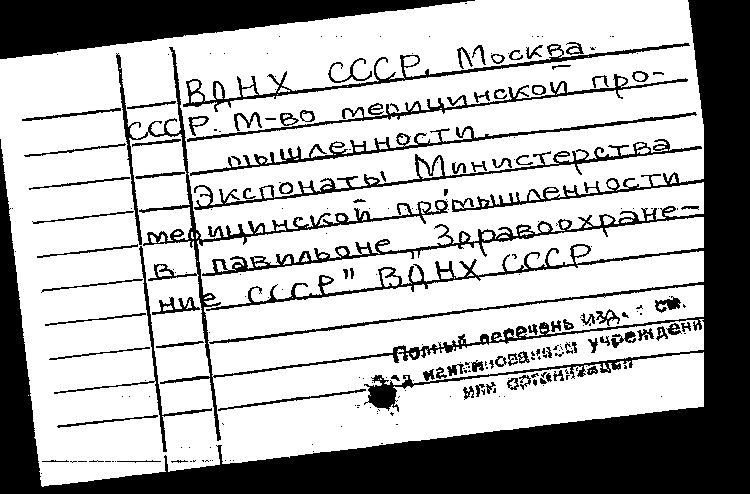 ВДНХ СССР. Москва.
СССР. М-во медицинской про-
мышленности.
Экспонаты Министерства
медицинской промышленности
в павильоне „Здравоохране-
ние СССР" ВДНХ СССР.
Полный перечень изд. см.
под наименованием учреждени
или организации